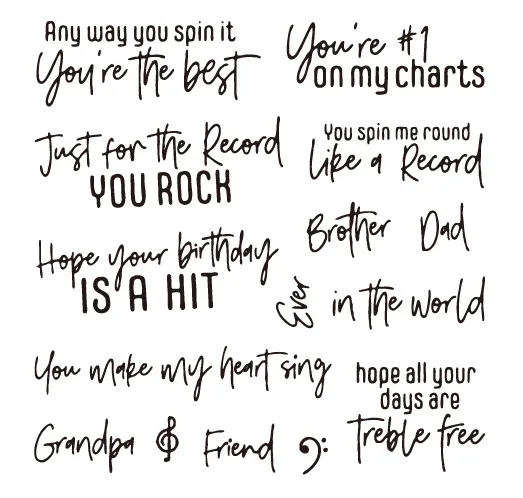 Any way you spin it
You're the best
You're #1
on my charts
Just for the Record
YOU ROCK
You spin me round
like a Record
Brother
Dad
Hope your birthday
IS A HIT
Ever
in the world
You make my heart sing
hope all your
days are
treble free
Grandpa
Friend